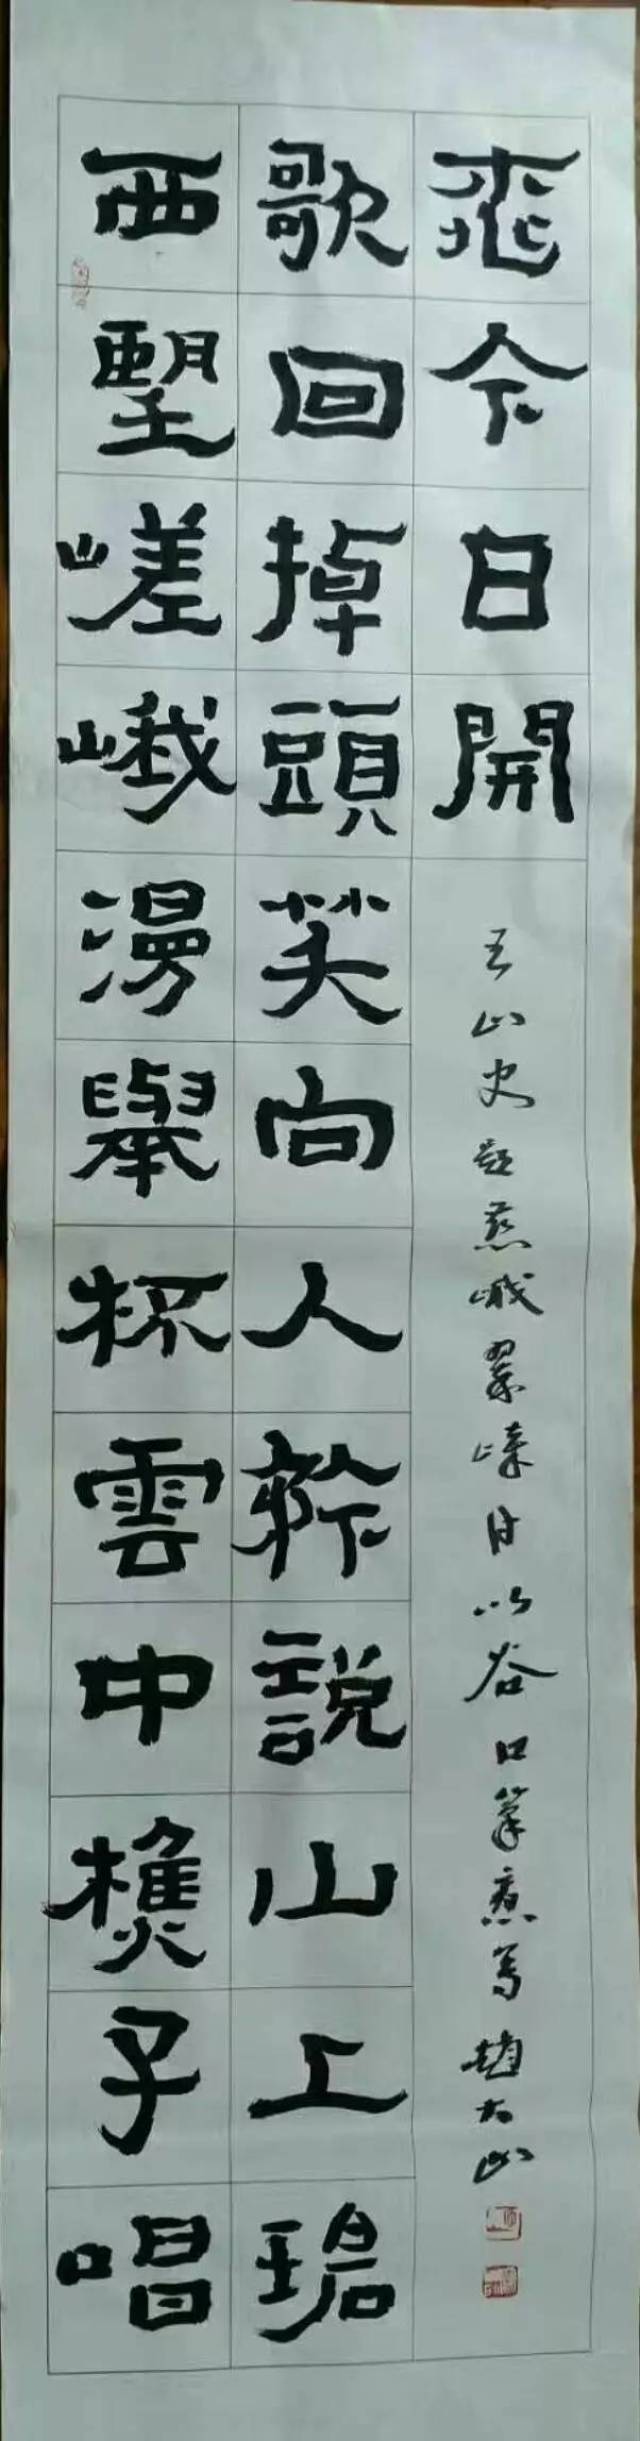 西望嵯峨漫舉杯雲中樵子唱
歌回掉頭笑向人矜說山上碧
桃今日開
王山史題慈峨翠以谷口筆意寫趙大山